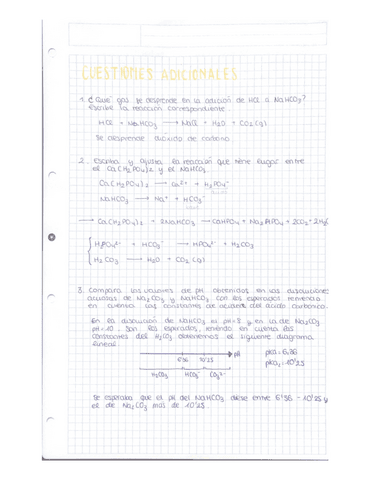 CUESTIONES ADICIONALES
1. ¿Qué gas se desprende en la adición de HCl a NaHCO3?
Escribe la reacción correspondiente.
HCl + NaHCO3 → NaCl + H2O + CO2(g)
Se desprende dióxido de carbono.
2. Escriba y ajusta la reacción que tiene lugar entre
el Ca(H2PO4)2 y el NaHCO3.
Ca(H2PO4)2 → Ca2+ + H2PO4-
NaHCO3 → Na+ + HCO3-
→ Ca(H2PO4)2 + 2NaHCO3 → CaHPO4 + Na2HPO4 + 2CO2 + 2H2O
H2PO4 + HCO3- → HPO4 + H2CO3
H2CO3 → H2O + CO2(g)
3. Compara los valores de pH obtenidos en las disoluciones
acuosas de Na2CO3 y NaHCO3 con los esperados teniendo
en cuenta las constantes de acidez del ácido carbónico.
En la disolución de NaHCO3 el pH=8 y en la de Na2CO3
pH=10. Son los esperados, teniendo en cuenta las
constantes del H2CO3 obtenemos el siguiente diagrama
lineal.
pH
6'36 10'25
H2CO3 HCO3- CO3 2-
pka = 6,36
pka2 = 10'25
Se esperaba que el pH del NaHCO3 diese entre 6'36 - 10'25 y
el de Na2CO3 más de 10'25.